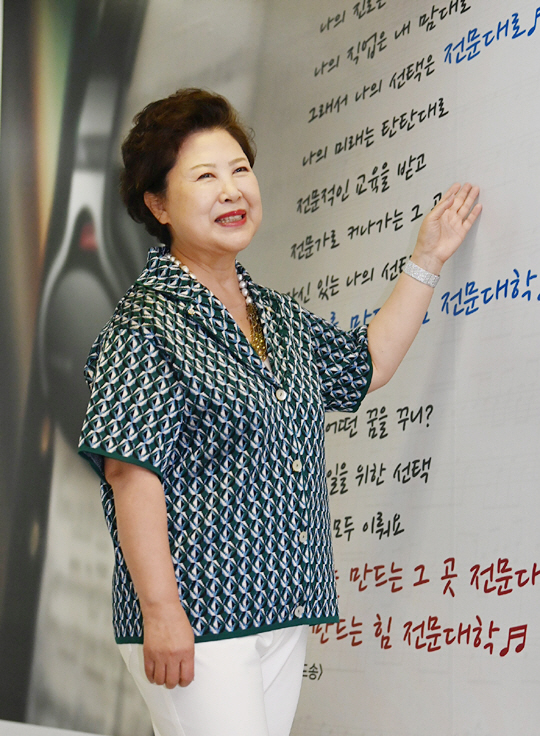 나의 진로는
나의 직업은 내 맘대로
그래서 나의 선택은 전문대로♬
나의 미래는 탄탄대로
전문적인 교육을 받고
전문가로 커나가는 그
있는 나의 선택
전문대학
어떤 꿈을 꾸니?
위한 선택
모두 이뤄요
만드는 그 곳 전문대
만드는 힘 전문대학♬